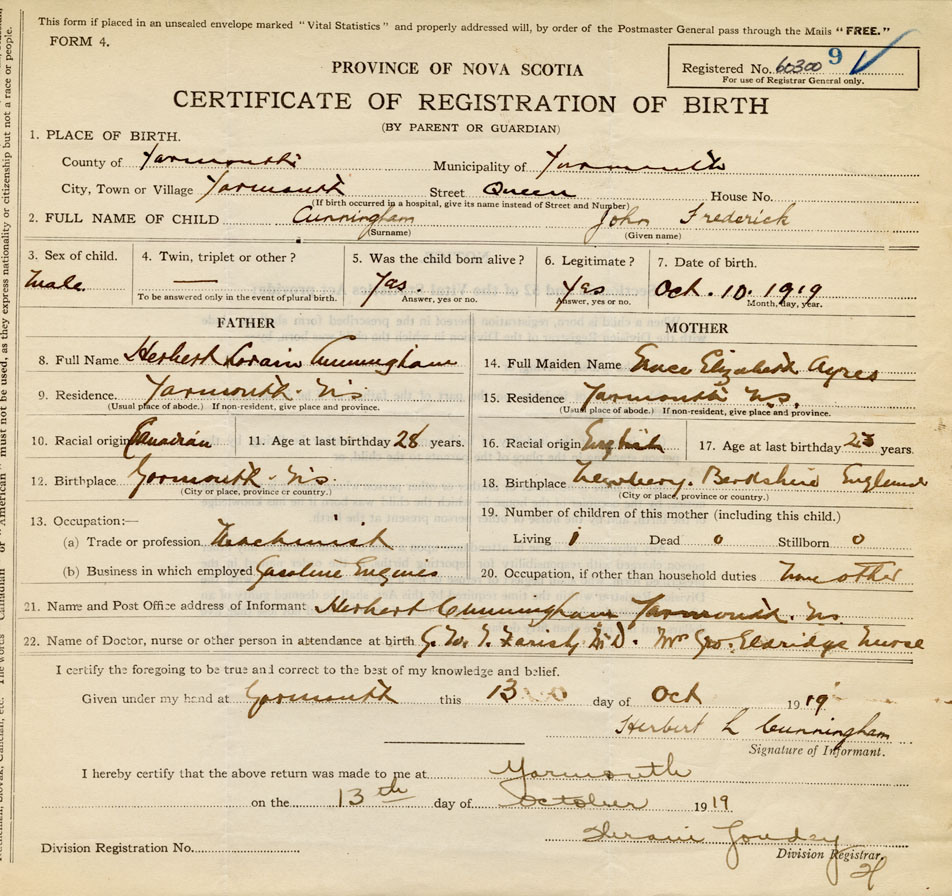 This form if placed in an unsealed envelope marked "Vital Statistics" and properly addressed will, by order of the Postmaster General pass through the Mails "FREE."
FORM 4.
Registered No. 60300 9
For use of Registrar General only.
PROVINCE OF NOVA SCOTIA
CERTIFICATE OF REGISTRATION OF BIRTH
(BY PARENT OR GUARDIAN)
1. PLACE OF BIRTH.
County of Yarmouth Municipality of Yarmouth
City, Town or Village Yarmouth Street Queen House No.
(If birth occurred in a hospital, give its name instead of Street and Number)
2. FULL NAME OF CHILD Cunningham John Frederick
(Surname) (Given name)
3. Sex of child. 4. Twin, triplet or other? 5. Was the child born alive? 6. Legitimate? 7. Date of birth.
Male — Yes. Yes Oct. 10. 1919
To be answered only in the event of plural birth. Answer, yes or no. Answer, yes or no. Month, day, year.
FATHER MOTHER
8. Full Name Herbert Lorain Cunningham 14. Full Maiden Name Elizabeth Ayres
9. Residence. Yarmouth N.S. 15. Residence Yarmouth N.S.
(Usual place of abode.) If non-resident, give place and province. (Usual place of abode.) If non-resident, give place and province.
10. Racial origin Canadian 11. Age at last birthday 28 years. 16. Racial origin English 17. Age at last birthday years.
12. Birthplace Yarmouth N.S. 18. Birthplace Newbery. Berkshire England
(City or place, province or country.) (City or place, province or country.)
13. Occupation:— 19. Number of children of this mother (including this child.)
(a) Trade or profession Machinist Living 1 Dead 0 Stillborn 0
(b) Business in which employed Gasoline Engines 20. Occupation, if other than household duties None other
21. Name and Post Office address of Informant Herbert Cunningham Yarmouth. N.S.
22. Name of Doctor, nurse or other person in attendance at birth Farish M.D. Mrs Geo. Eldridge Nurse
I certify the foregoing to be true and correct to the best of my knowledge and belief.
Given under my hand at Yarmouth this 13 day of Oct 1919
Herbert L Cunningham
Signature of Informant.
I hereby certify that the above return was made to me at Yarmouth
on the 13th day of October 1919
Division Registration No. Division Registrar.